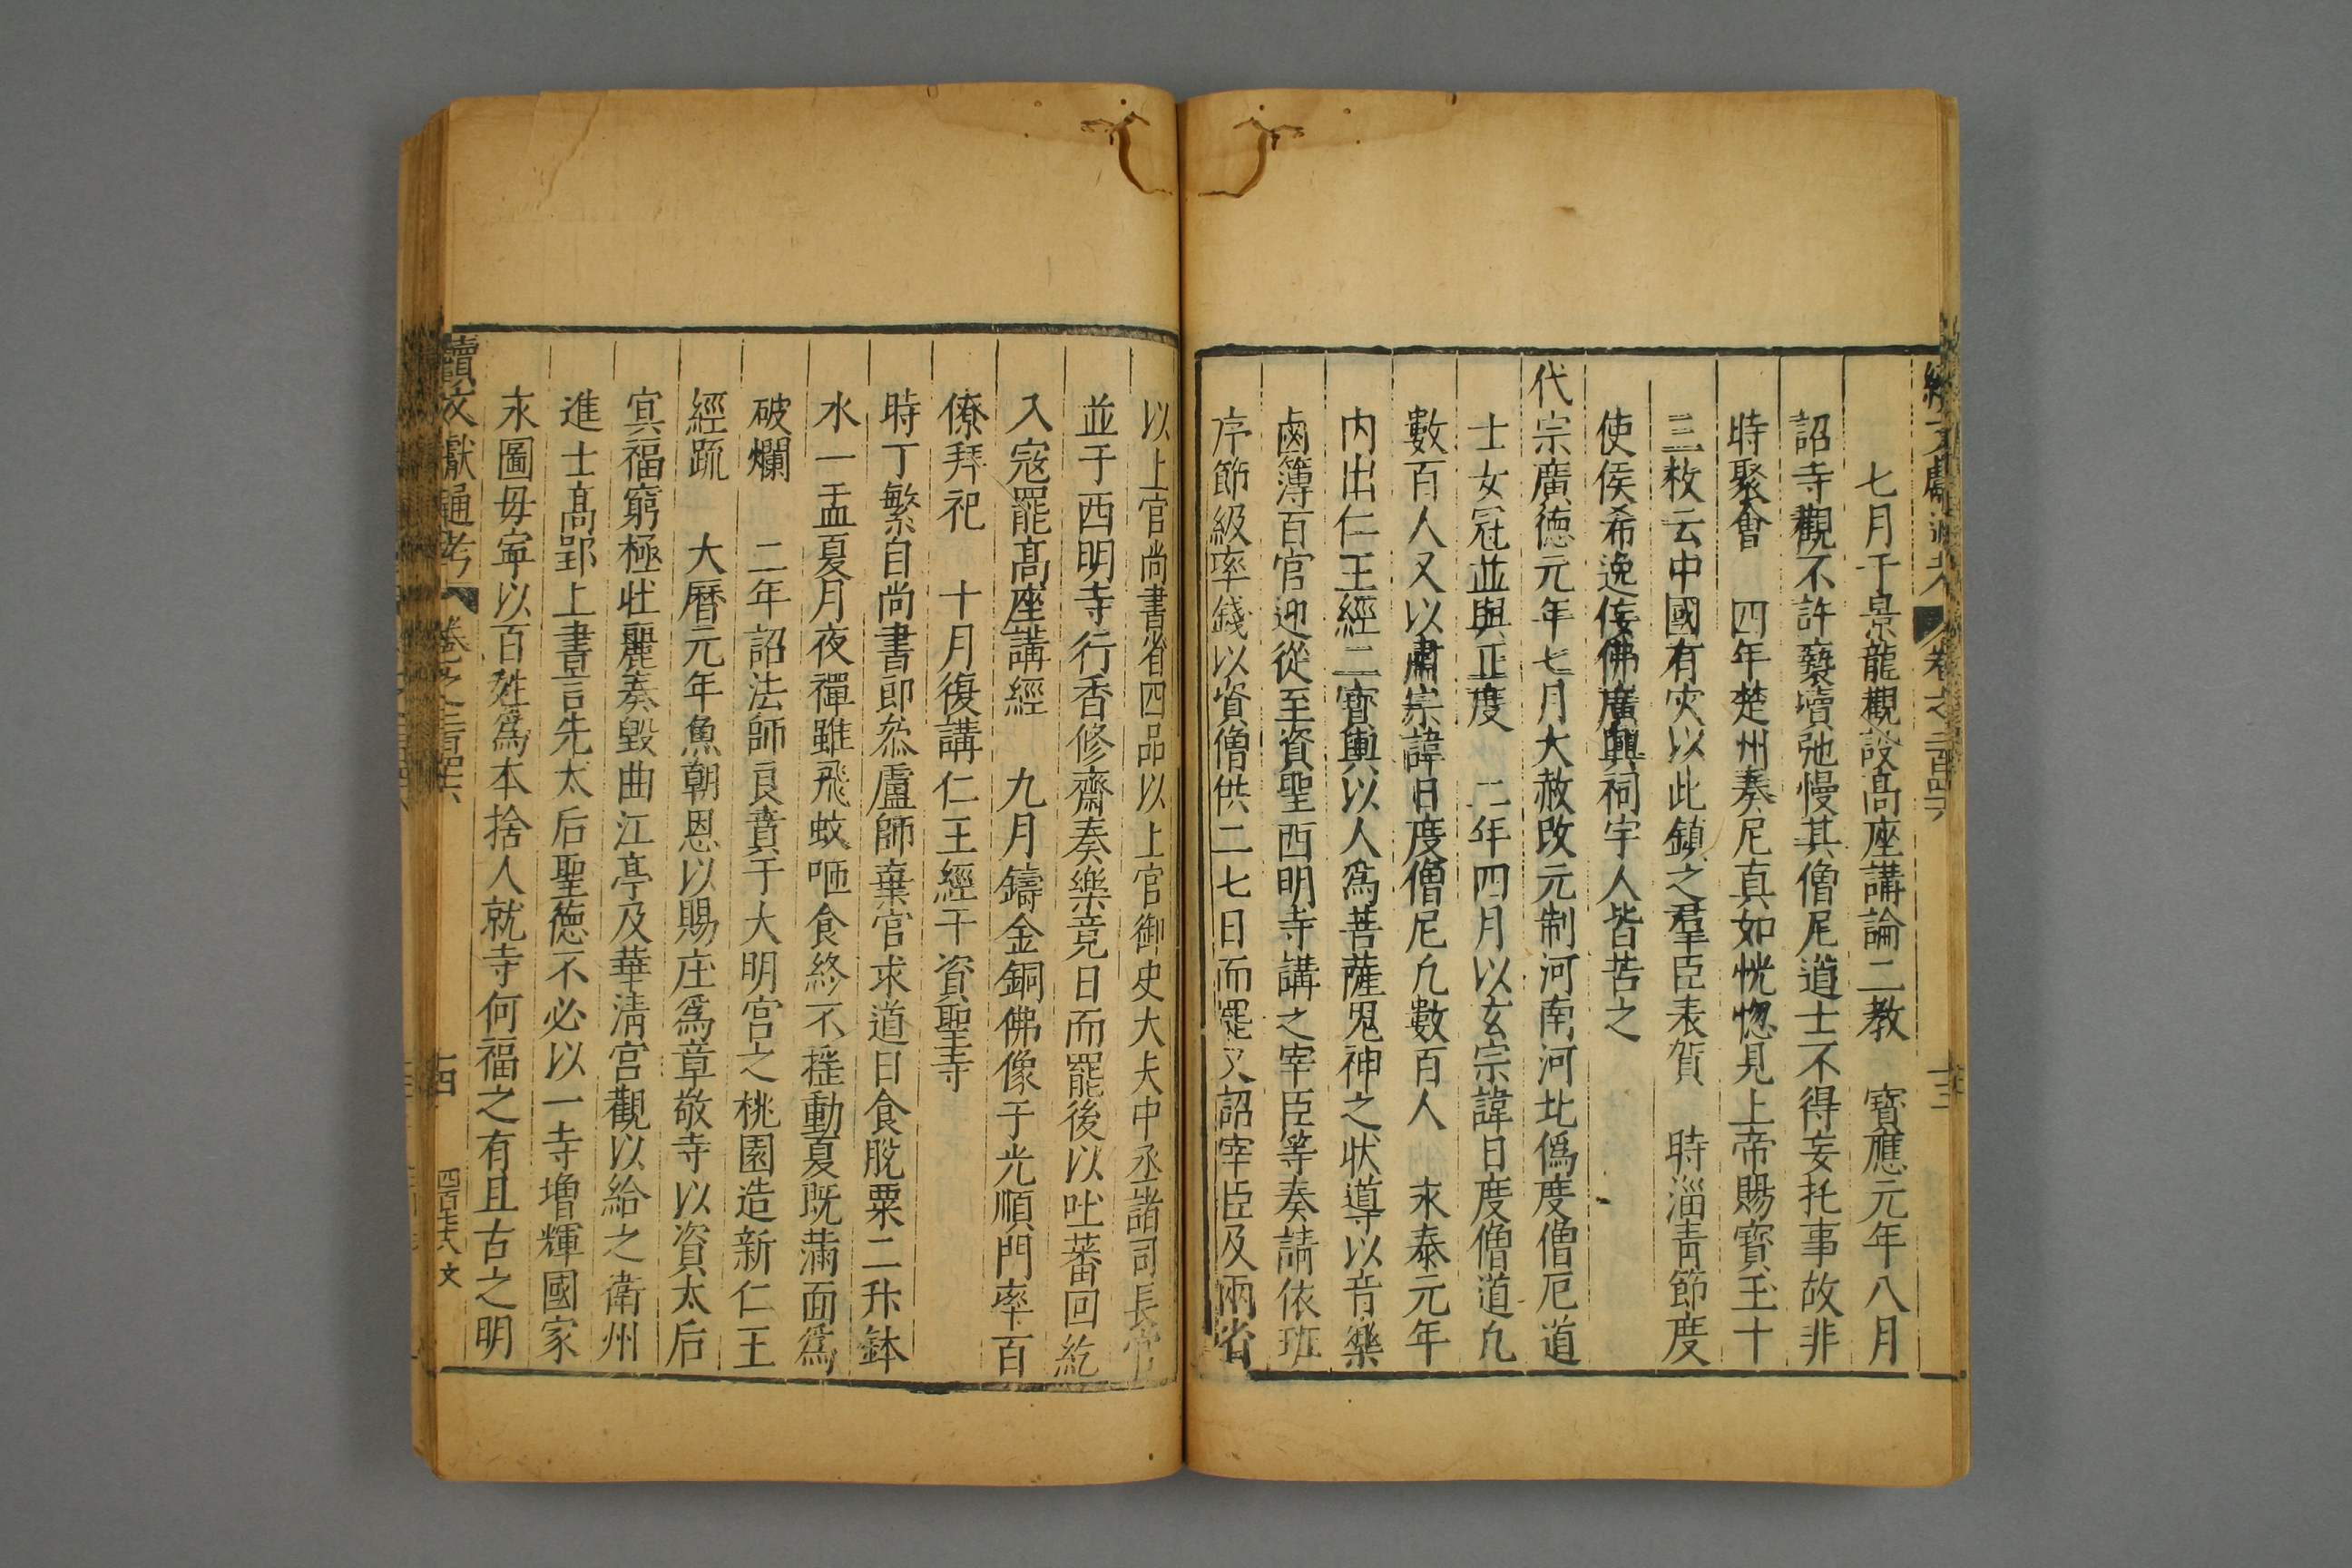 七月于景龍觀設高座講論二教 寶應元年八月
詔寺觀不許褻瀆弛慢其僧尼道士不得妄托事故非
時聚會 四年楚州奏尼真如恍惚見上帝賜寶玉十
三枚云中國有灾以此鎮之羣臣表賀 時淄青節度
使侯希逸佞佛廣興祠宇人皆苦之
代宗廣德元年七月大赦改元制河南河北僞度僧尼道
士女冠並與正度 二年四月以玄宗諱日度僧道凡
數百人又以肅宗諱日度僧尼凡數百人 永泰元年
内出仁王經二寶輿以人爲菩薩鬼神之狀導以音樂
鹵簿百官迎從至資聖西明寺講之宰臣等奏請依班
序節級率錢以資僧供二七日而罷又詔宰臣及兩省
以上官尚書省四品以上官御史大夫中丞諸司長官
並于西明寺行香修齋奏樂竟日而罷後以吐蕃回紇
入寇罷高座講經 九月鑄金銅佛像于光順門率百
僚拜祀 十月復講仁王經于資聖寺
時丁繁自尚書郎叅盧師棄官求道日食脫粟二升鉢
水一盂夏月夜禪雖飛蚊咂食終不搖動夏既滿面爲
破爛 二年詔法師良賁于大明宫之桃園造新仁王
經疏 大曆元年魚朝恩以賜庄爲章敬寺以資太后
冥福窮極壯麗奏毀曲江亭及華清宫觀以給之衛州
進士高郢上書言先太后聖德不必以一寺增輝國家
永圖毋寧以百姓爲本捨人就寺何福之有且古之明
續文獻通考 卷之二百四六 十四 四百七十八 文